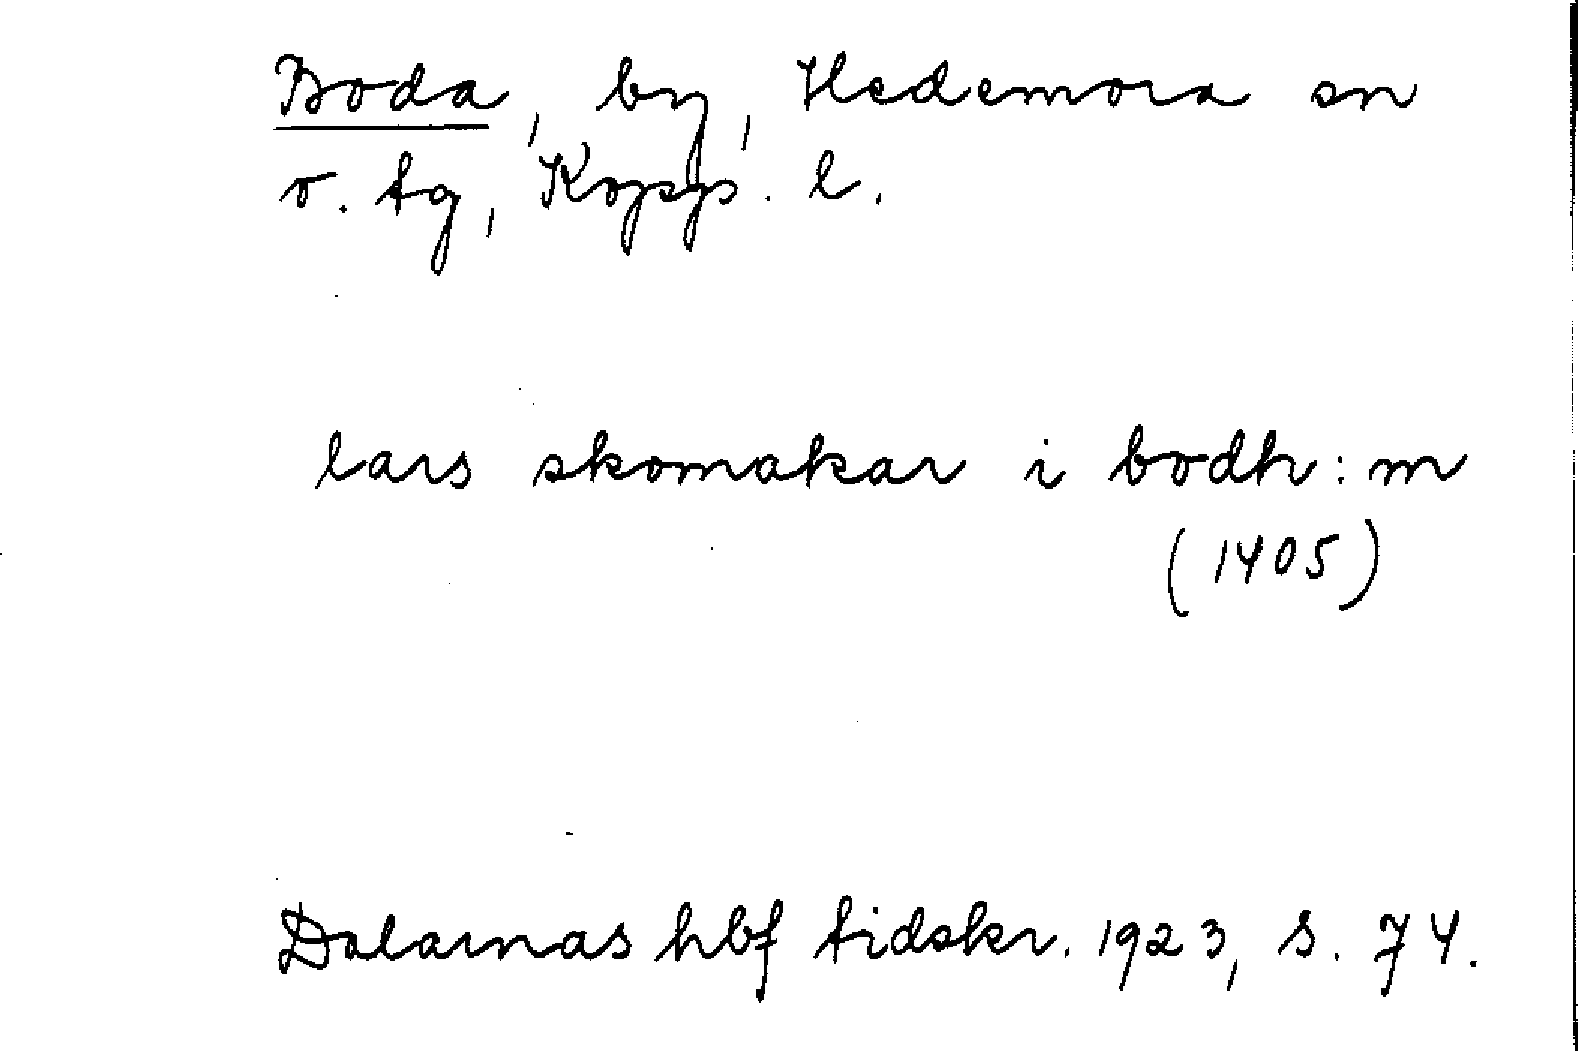 Boda, by, Hedemora sn
o. tg, Kopp. l.
lars skomakar i bodh:m
(1405)
Dalarnas hbf tidskr. 1923, s. 74.